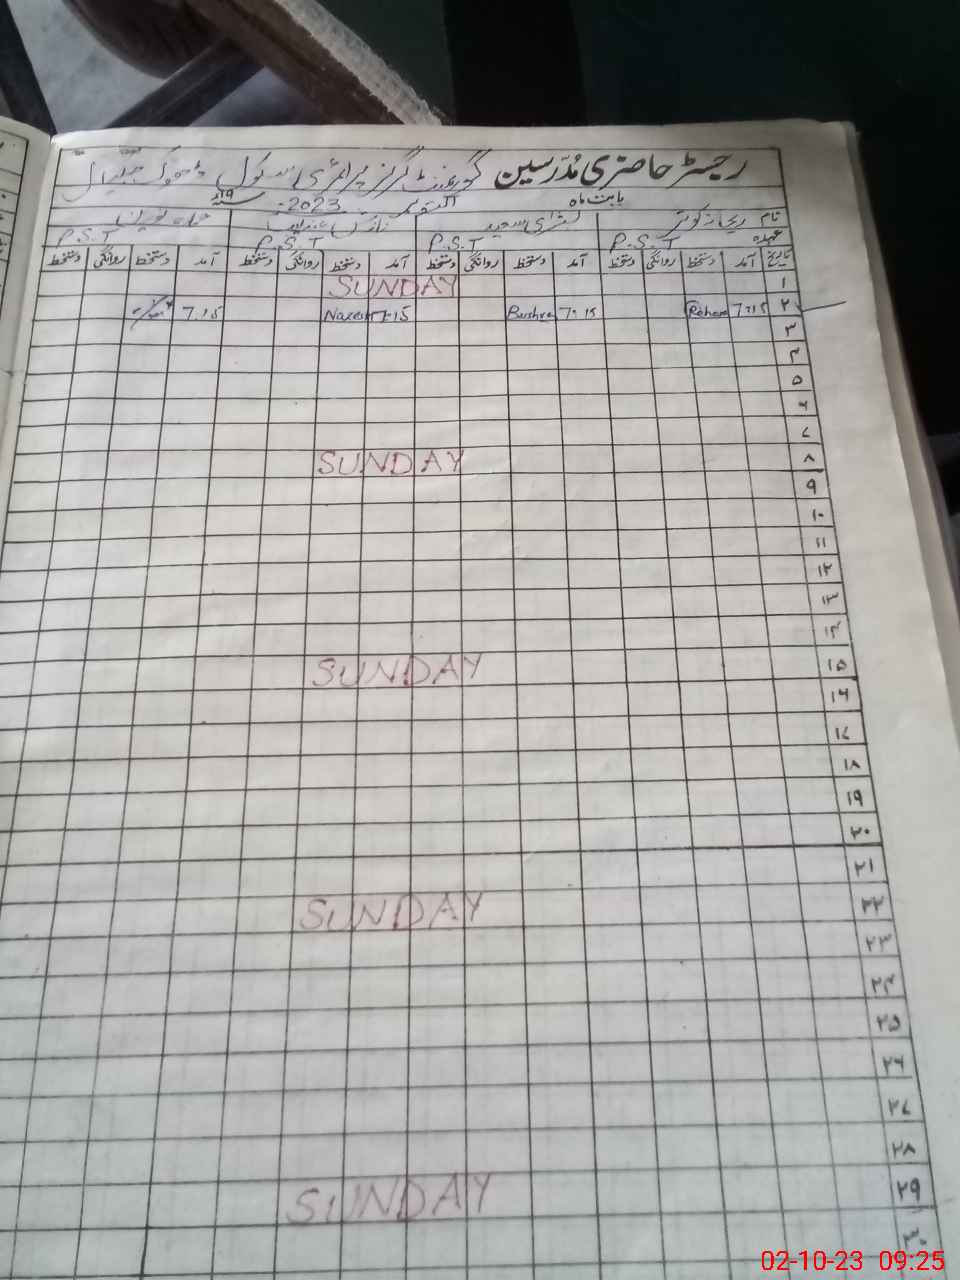 رجسٹر حاضری مُدرّسین گورنمنٹ گرلز پرائمری سکول ڈھوک
بابت ماہ اکتوبر 2023 سنہ ۱۹ء
نام ریحانہ کوثر بشریٰ سعید نازش
عہدہ P.S.T P.S.T P.S.T P.S.T
تاریخ آمد دستخط روانگی دستخط آمد دستخط روانگی دستخط آمد دستخط روانگی دستخط آمد دستخط روانگی دستخط
۱ SUNDAY
۲ 7:15 Rehana 7:15 Bushra 7:15 Nazesh 7:15
۳
۴
۵
۶
۷
۸ SUNDAY
۹
۱۰
۱۱
۱۲
۱۳
۱۴
۱۵ SUNDAY
۱۶
۱۷
۱۸
۱۹
۲۰
۲۱
۲۲ SUNDAY
۲۳
۲۴
۲۵
۲۶
۲۷
۲۸
۲۹ SUNDAY
۳۰
02-10-23 09:25